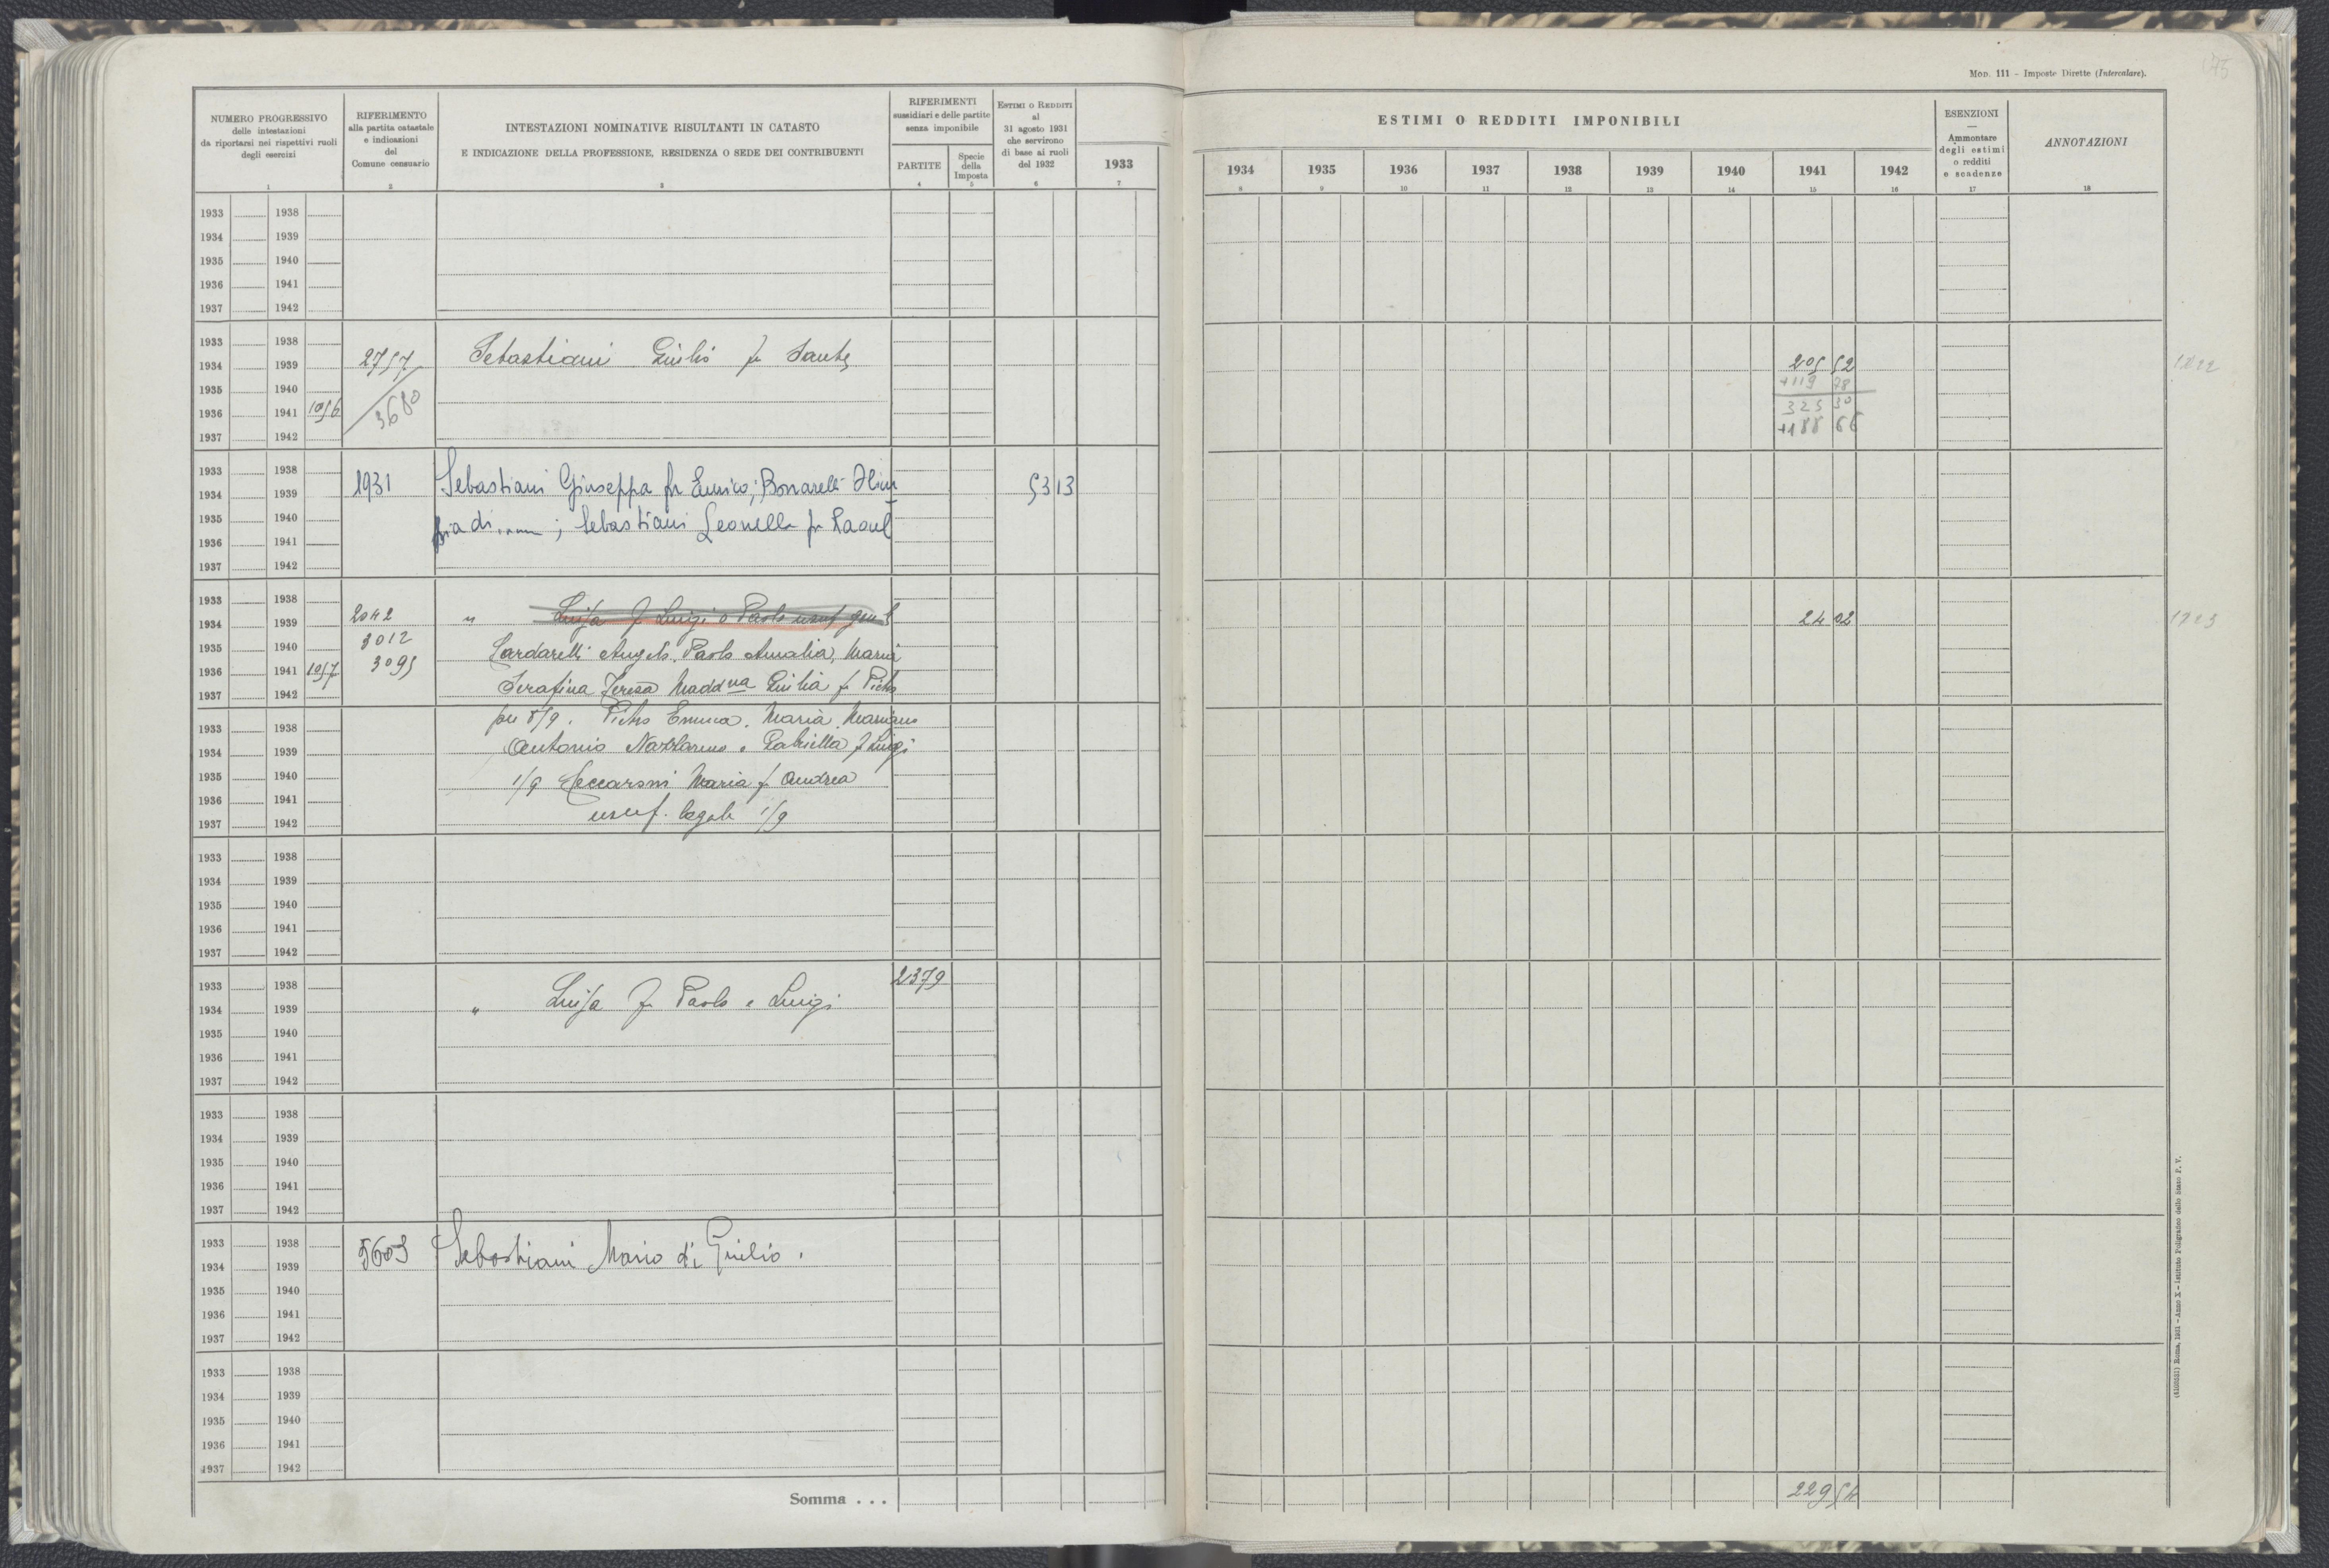 Mod. 111 - Imposte Dirette (Intercalare).
175
NUMERO PROGRESSIVO
delle intestazioni
da riportarsi nei rispettivi ruoli
degli esercizi
1
RIFERIMENTO
alla partita catastale
e indicazioni
del
Comune censuario
2
INTESTAZIONI NOMINATIVE RISULTANTI IN CATASTO
E INDICAZIONE DELLA PROFESSIONE, RESIDENZA O SEDE DEI CONTRIBUENTI
3
RIFERIMENTI
sussidiari e delle partite
senza imponibile
PARTITE
4
Specie
della
Imposta
5
ESTIMI O REDDITI
al
31 agosto 1931
che servirono
di base ai ruoli
del 1932
6
1933
7
ESTIMI O REDDITI IMPONIBILI
1934 1935 1936 1937 1938 1939 1940 1941 1942
8 9 10 11 12 13 14 15 16
ESENZIONI
—
Ammontare
degli estimi
o redditi
e scadenze
17
ANNOTAZIONI
18
1933 1938
1934 1939
1935 1940
1936 1941
1937 1942
1933 1938
1934 1939 2757 Sebastiani Giulio fu Sante 205 52
1935 1940 3680 +119 78
1936 1941 1056 325 30
1937 1942 +188 66
1933 1938
1934 1939 1931 Sebastiani Giuseppa fu Enrico; Bonarelli Olim 53 13
1935 1940 pia di ; Sebastiani Leonella fu Raoul
1936 1941
1937 1942
1933 1938
1934 1939 2042 " Luisa fu Luigi o Paolo usuf gen 24 02
1935 1940 3012 Lardarelli Angelo. Paolo Amalia, Maria
1936 1941 1057 3095
1937 1942 Serafina Teresa Madd na Giulia fu Pietro
1933 1938 per 8/9. Pietro Emma. Maria. Mariano
1934 1939 Antonio Nazzareno e Gabriella fu Luigi
1935 1940 1/9 Ceccaroni Maria fu Andrea
1936 1941
1937 1942 usuf. legale 1/9
1933 1938
1934 1939
1935 1940
1936 1941
1937 1942
1933 1938 2379
1934 1939 " Luisa fu Paolo e Luigi
1935 1940
1936 1941
1937 1942
1933 1938
1934 1939
1935 1940
1936 1941
1937 1942
1933 1938
1934 1939 5603 Sebastiani Mario di Giulio.
1935 1940
1936 1941
1937 1942
1933 1938
1934 1939
1935 1940
1936 1941
1937 1942
Somma . . . 229 54
(4108551) Roma, 1931 - Anno X - Istituto Poligrafico dello Stato P. V.